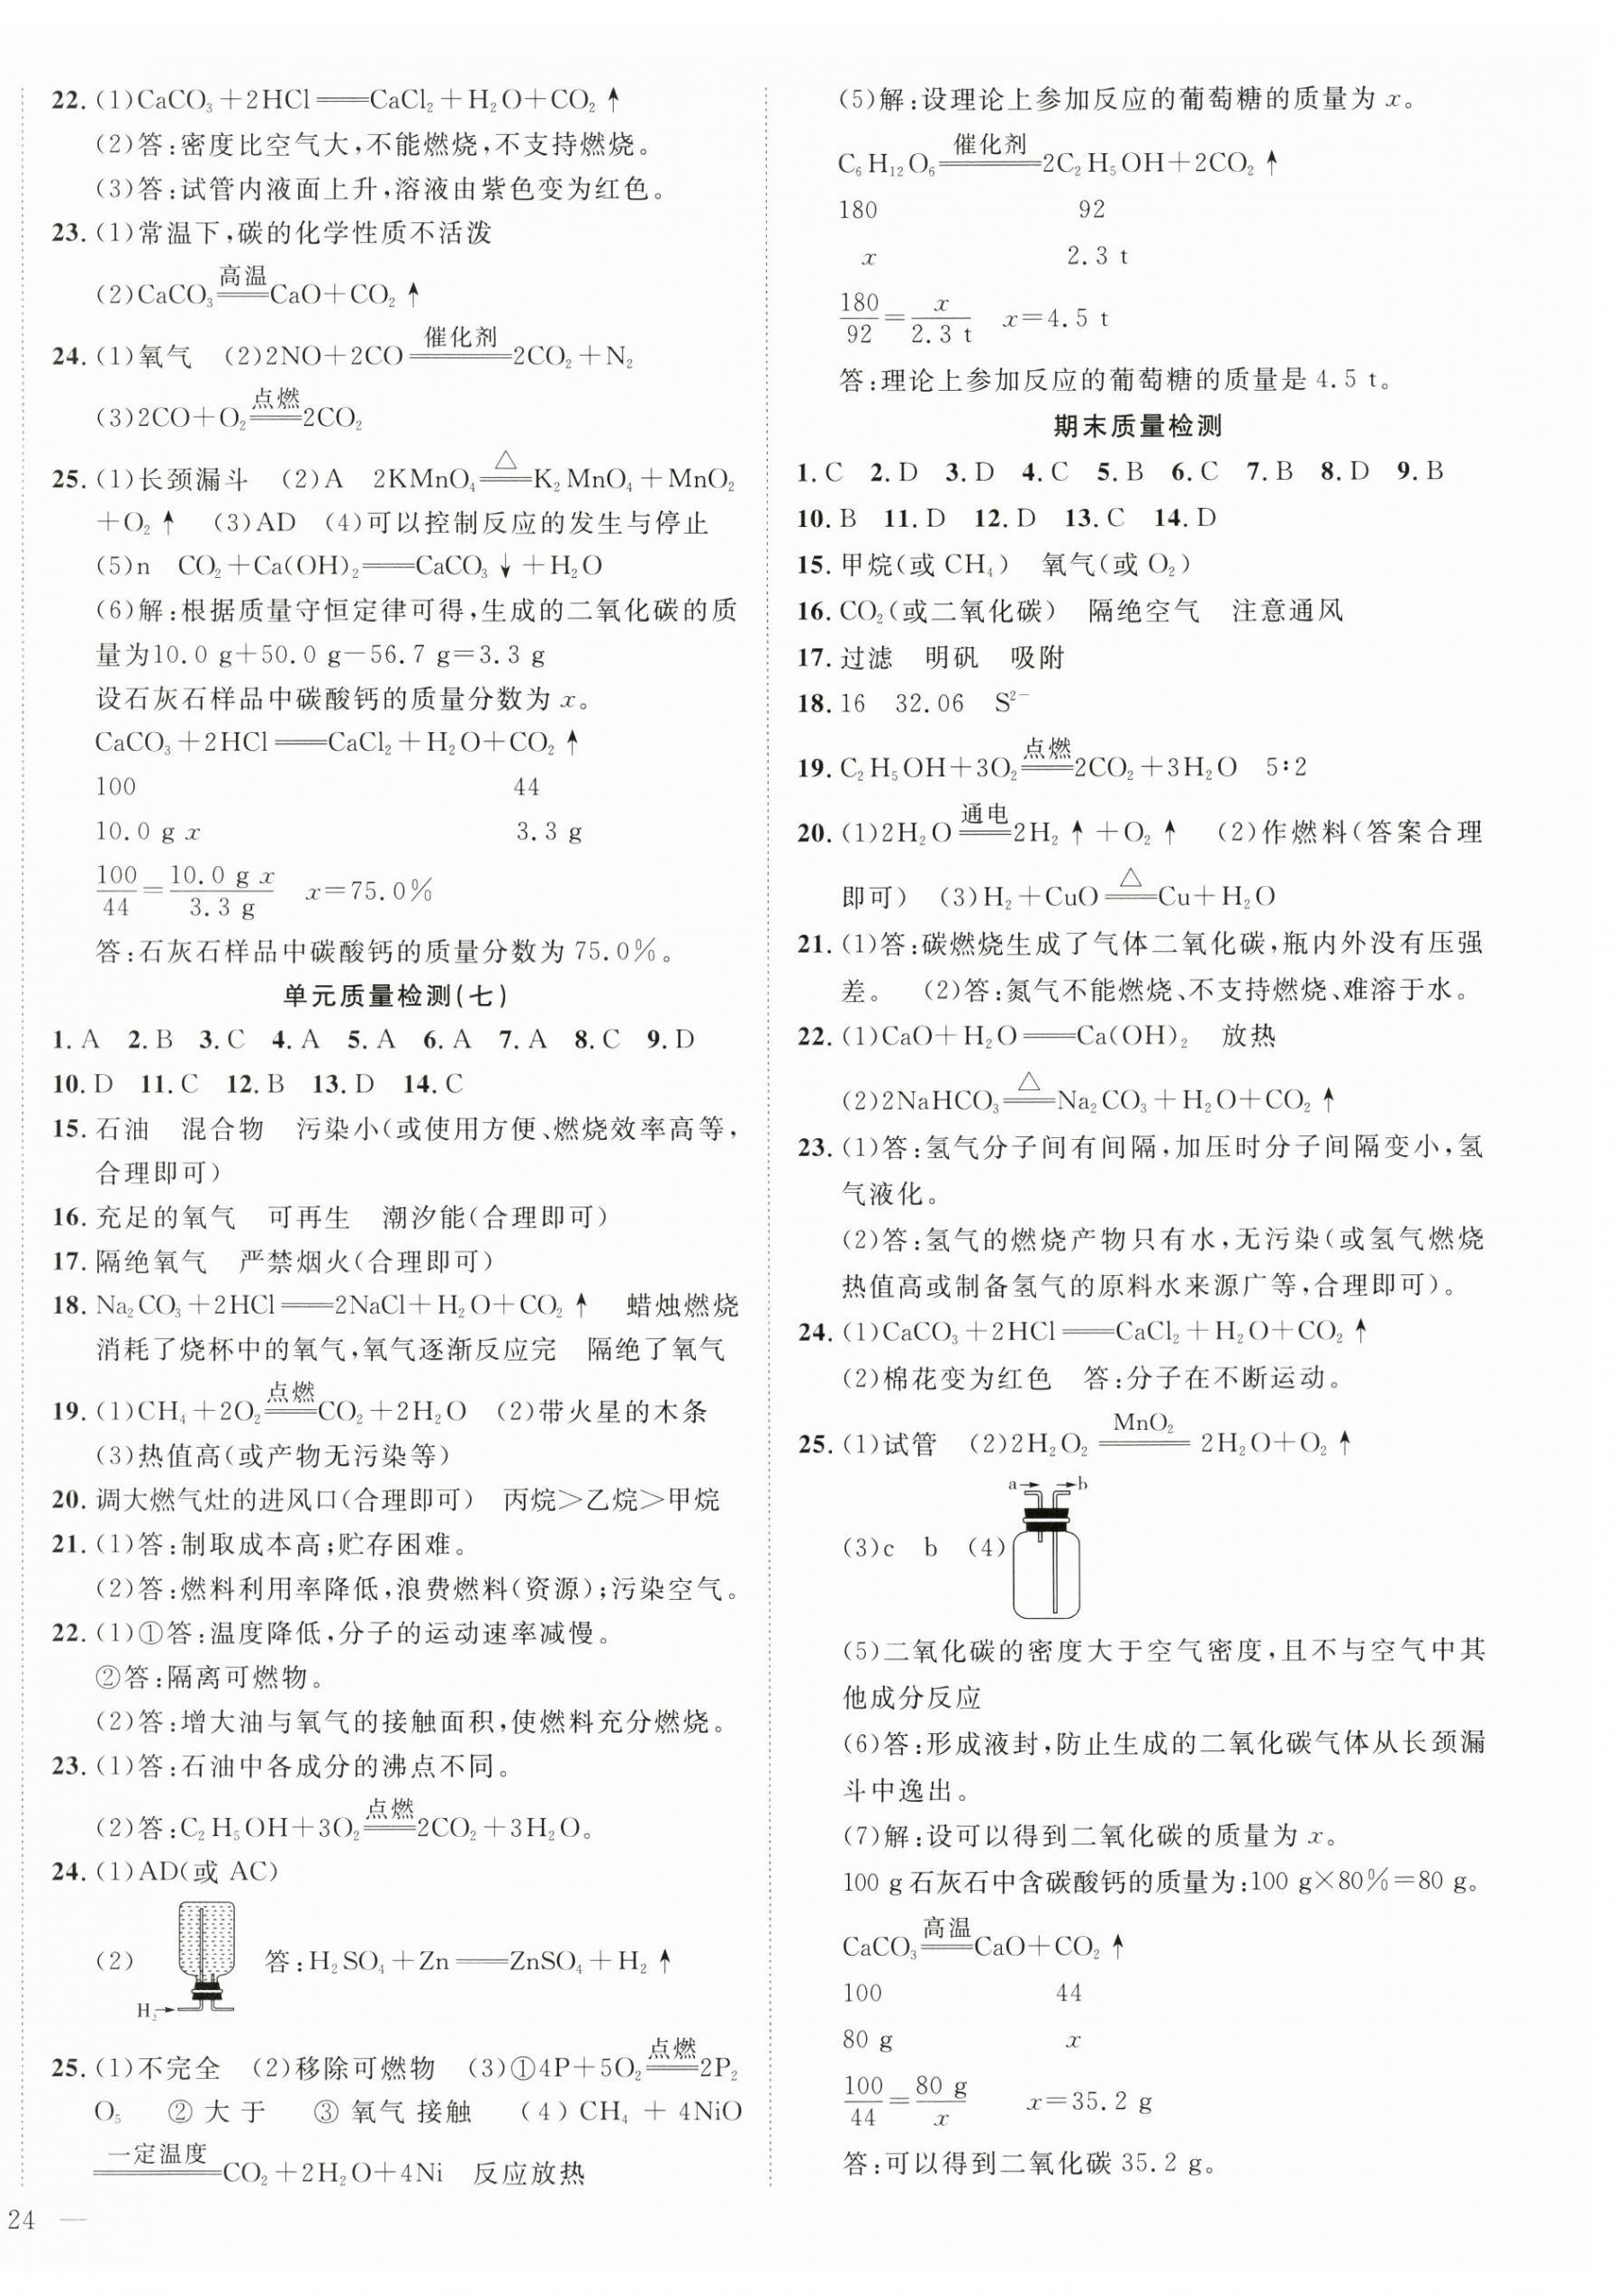 22. (1)CaCO₃+2HCl══CaCl₂+H₂O+CO₂↑
(2)答:密度比空气大,不能燃烧,不支持燃烧。
(3)答:试管内液面上升,溶液由紫色变为红色。
23. (1)常温下,碳的化学性质不活泼
高温
(2)CaCO₃══CaO+CO₂↑
催化剂
24. (1)氧气 (2)2NO+2CO══2CO₂+N₂
点燃
(3)2CO+O₂══2CO₂
△
25. (1)长颈漏斗 (2)A 2KMnO₄══K₂MnO₄+MnO₂
+O₂↑ (3)AD (4)可以控制反应的发生与停止
(5)n CO₂+Ca(OH)₂══CaCO₃↓+H₂O
(6)解:根据质量守恒定律可得,生成的二氧化碳的质
量为10.0 g+50.0 g-56.7 g=3.3 g
设石灰石样品中碳酸钙的质量分数为 x。
CaCO₃+2HCl══CaCl₂+H₂O+CO₂↑
100 44
10.0 g x 3.3 g
100/44=10.0 g x/3.3 g x=75.0%
答:石灰石样品中碳酸钙的质量分数为 75.0%。
单元质量检测(七)
1. A 2. B 3. C 4. A 5. A 6. A 7. A 8. C 9. D
10. D 11. C 12. B 13. D 14. C
15. 石油 混合物 污染小(或使用方便、燃烧效率高等,
合理即可)
16. 充足的氧气 可再生 潮汐能(合理即可)
17. 隔绝氧气 严禁烟火(合理即可)
18. Na₂CO₃+2HCl══2NaCl+H₂O+CO₂↑ 蜡烛燃烧
消耗了烧杯中的氧气,氧气逐渐反应完 隔绝了氧气
点燃
19. (1)CH₄+2O₂══CO₂+2H₂O (2)带火星的木条
(3)热值高(或产物无污染等)
20. 调大燃气灶的进风口(合理即可) 丙烷>乙烷>甲烷
21. (1)答:制取成本高;贮存困难。
(2)答:燃料利用率降低,浪费燃料(资源);污染空气。
22. (1)①答:温度降低,分子的运动速率减慢。
②答:隔离可燃物。
(2)答:增大油与氧气的接触面积,使燃料充分燃烧。
23. (1)答:石油中各成分的沸点不同。
点燃
(2)答:C₂H₅OH+3O₂══2CO₂+3H₂O。
24. (1)AD(或 AC)
(2) 答:H₂SO₄+Zn══ZnSO₄+H₂↑
H₂→
点燃
25. (1)不完全 (2)移除可燃物 (3)①4P+5O₂══2P₂
O₅ ②大于 ③氧气 接触 (4)CH₄+4NiO
一定温度
══CO₂+2H₂O+4Ni 反应放热
24 —
(5)解:设理论上参加反应的葡萄糖的质量为 x。
催化剂
C₆H₁₂O₆══2C₂H₅OH+2CO₂↑
180 92
x 2.3 t
180/92=x/2.3 t x=4.5 t
答:理论上参加反应的葡萄糖的质量是 4.5 t。
期末质量检测
1. C 2. D 3. D 4. C 5. B 6. C 7. B 8. D 9. B
10. B 11. D 12. D 13. C 14. D
15. 甲烷(或 CH₄) 氧气(或 O₂)
16. CO₂(或二氧化碳) 隔绝空气 注意通风
17. 过滤 明矾 吸附
18. 16 32.06 S²⁻
点燃
19. C₂H₅OH+3O₂══2CO₂+3H₂O 5∶2
通电
20. (1)2H₂O══2H₂↑+O₂↑ (2)作燃料(答案合理
△
即可) (3)H₂+CuO══Cu+H₂O
21. (1)答:碳燃烧生成了气体二氧化碳,瓶内外没有压强
差。 (2)答:氮气不能燃烧、不支持燃烧、难溶于水。
22. (1)CaO+H₂O══Ca(OH)₂ 放热
△
(2)2NaHCO₃══Na₂CO₃+H₂O+CO₂↑
23. (1)答:氢气分子间有间隔,加压时分子间隔变小,氢
气液化。
(2)答:氢气的燃烧产物只有水,无污染(或氢气燃烧
热值高或制备氢气的原料水来源广等,合理即可)。
24. (1)CaCO₃+2HCl══CaCl₂+H₂O+CO₂↑
(2)棉花变为红色 答:分子在不断运动。
MnO₂
25. (1)试管 (2)2H₂O₂══2H₂O+O₂↑
a→ →b
(3)c b (4)
(5)二氧化碳的密度大于空气密度,且不与空气中其
他成分反应
(6)答:形成液封,防止生成的二氧化碳气体从长颈漏
斗中逸出。
(7)解:设可以得到二氧化碳的质量为 x。
100 g石灰石中含碳酸钙的质量为:100 g×80%=80 g。
高温
CaCO₃══CaO+CO₂↑
100 44
80 g x
100/44=80 g/x x=35.2 g
答:可以得到二氧化碳 35.2 g。